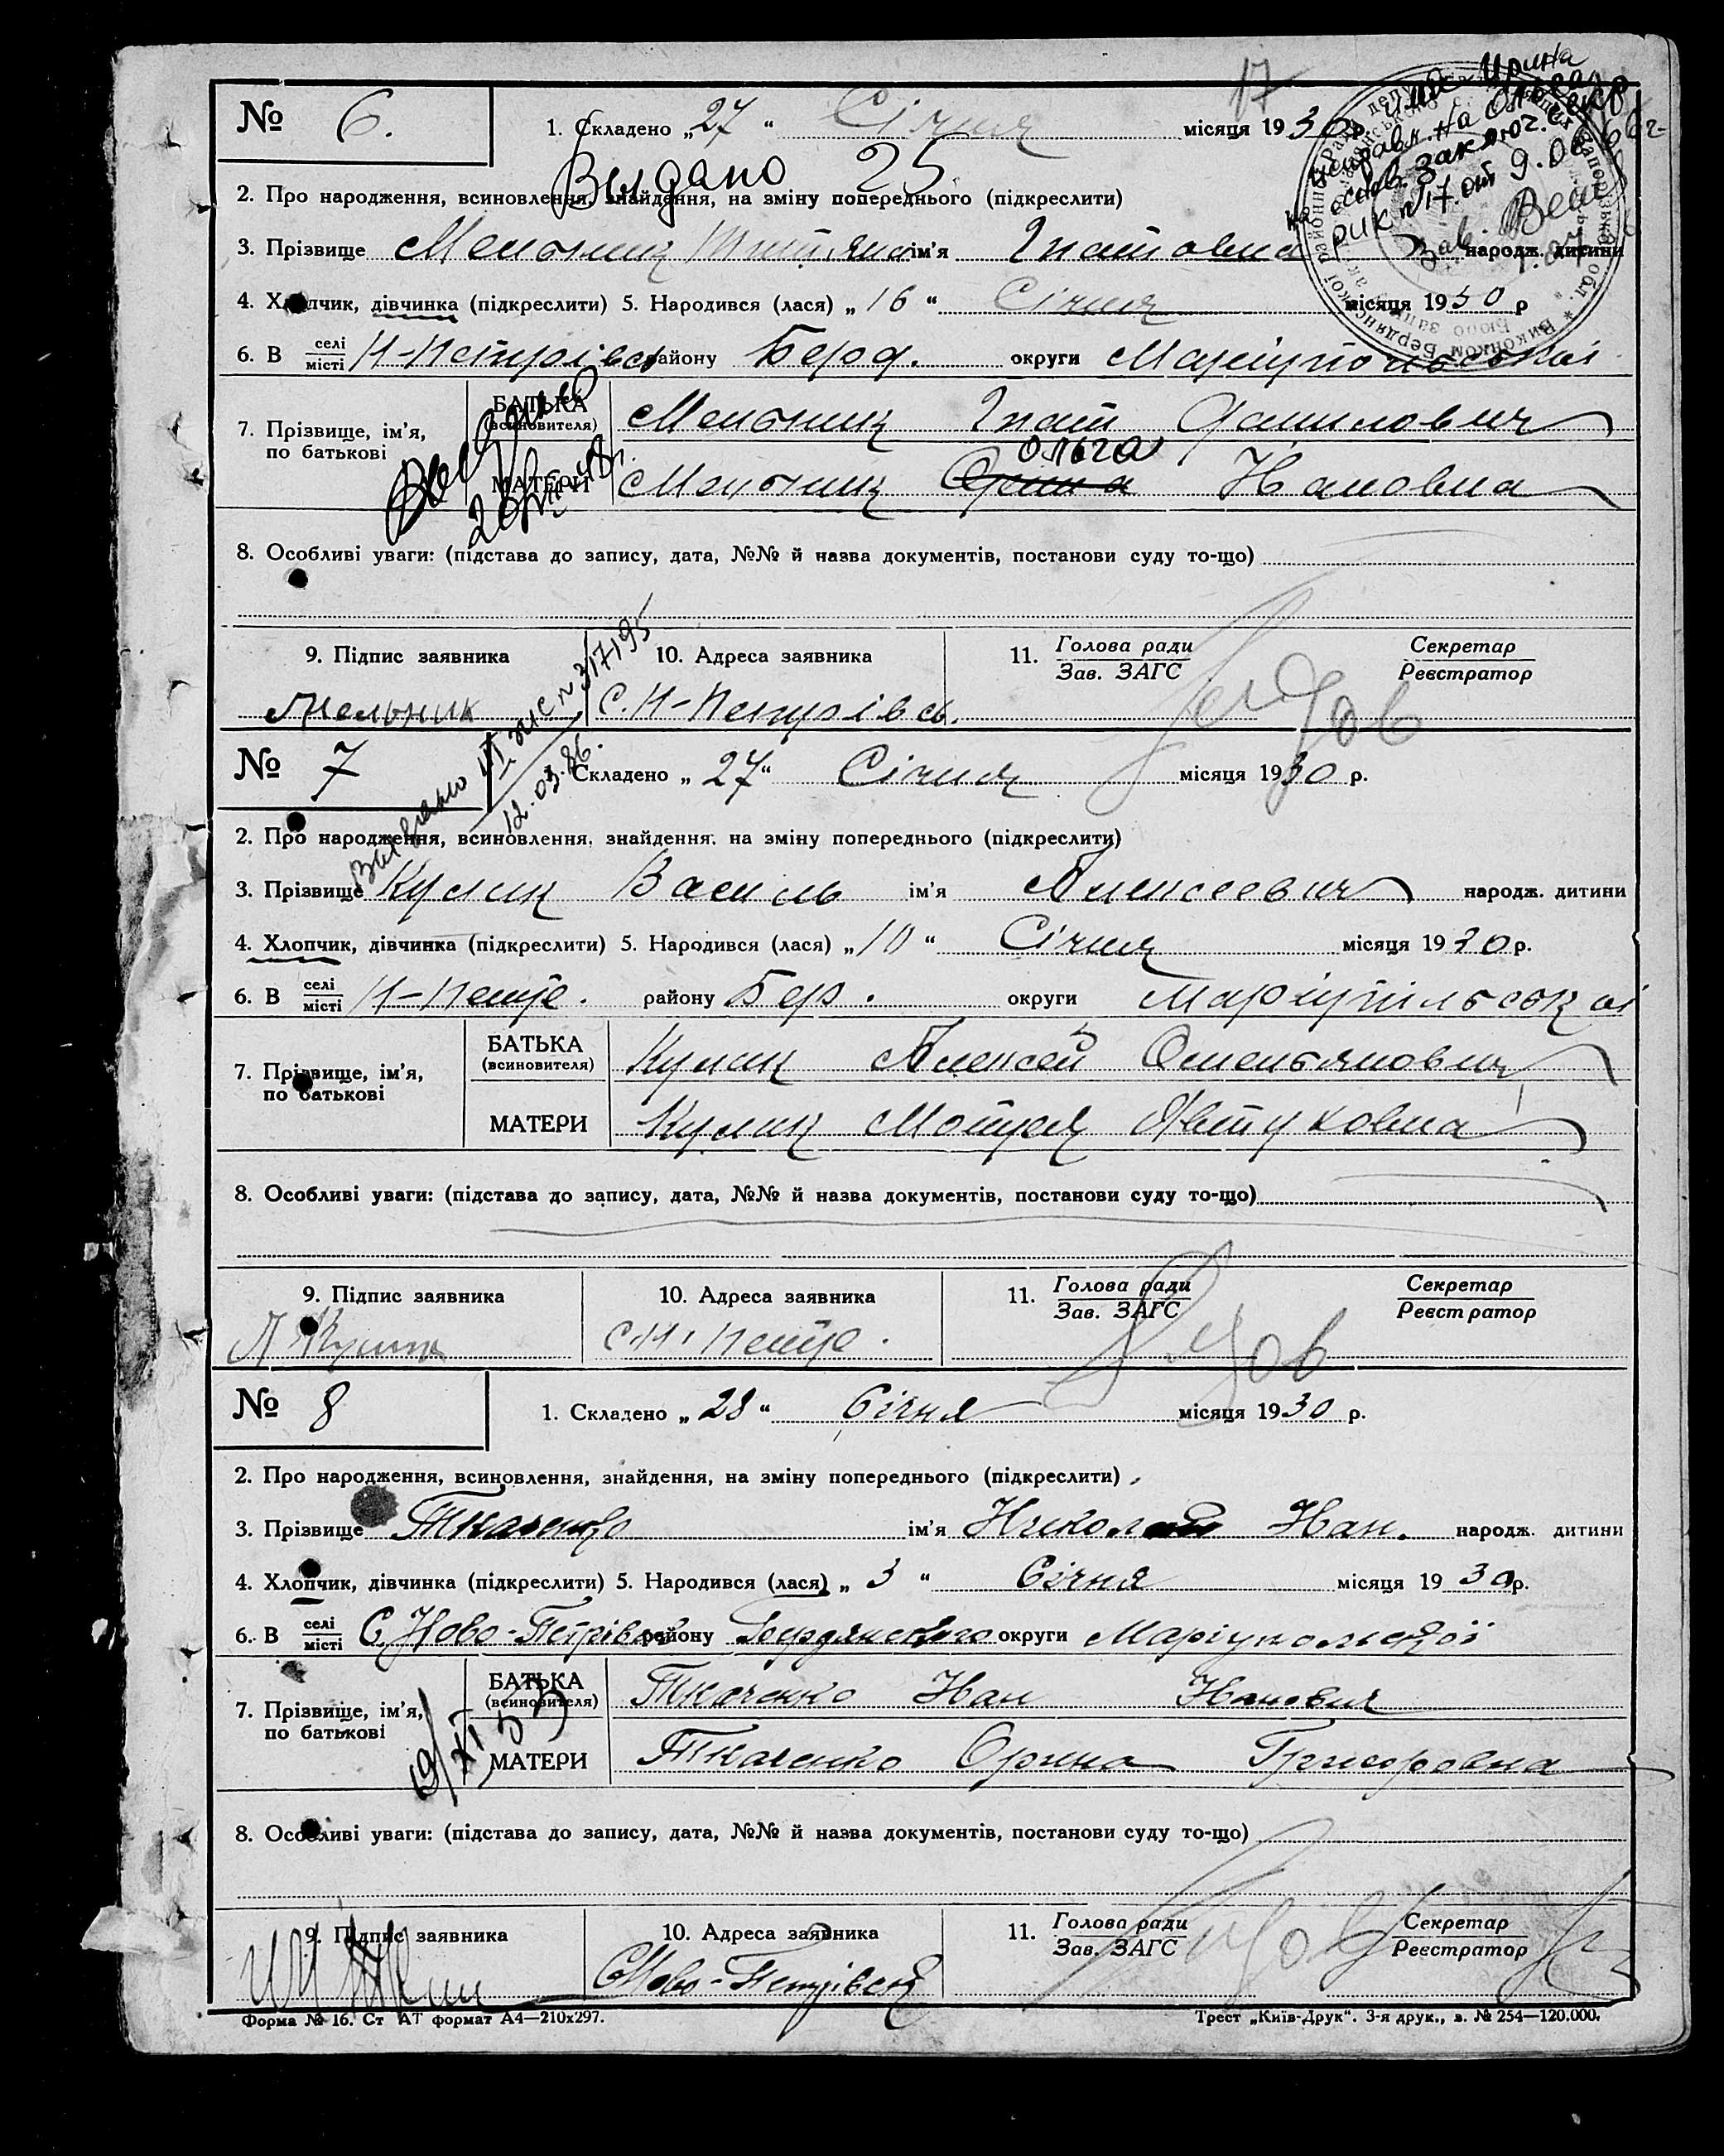 17
№ 6. 1. Складено „27“ Січня місяця 1930 р.
имя Ирина
исправл. на Ольга
на основ. заключ.
РИК №17 от 9.06.66г.
Зав.
Видано 25
2. Про народження, всиновлення, знайдення, на зміну попереднього (підкреслити)
3. Прізвище Мельник Тетяна ім'я Гнатовна народж. дитини
4. Хлопчик, дівчинка (підкреслити) 5. Народився (лася) „16“ Січня місяця 1930 р
6. В селі/місті Н-Петрівсь району Берд. округи Маріупольської
7. Прізвище, ім'я, по батькові БАТЬКА (всиновителя) Мельник Гнат Данилович
Ольга
МАТЕРИ Мельник Ірина Ивановна
8. Особливі уваги: (підстава до запису, дата, №№ й назва документів, постанови суду то-що)
9. Підпис заявника 10. Адреса заявника 11. Голова ради/Зав. ЗАГС Секретар/Реєстратор
Мельник С. Н-Петрівсь.
№ 7 1. Складено „27“ Січня місяця 1930 р.
12.03.86.
2. Про народження, всиновлення, знайдення, на зміну попереднього (підкреслити)
3. Прізвище Кулик Василь ім'я Алексеевич народж. дитини
4. Хлопчик, дівчинка (підкреслити) 5. Народився (лася) „10“ Січня місяця 1930 р.
6. В селі/місті Н-Петр. району Бер. округи Маріупільської
7. Прізвище, ім'я, по батькові БАТЬКА (всиновителя) Кулик Алексей Омельянович
МАТЕРИ Кулик Мотря Явтуховна
8. Особливі уваги: (підстава до запису, дата, №№ й назва документів, постанови суду то-що)
9. Підпис заявника 10. Адреса заявника 11. Голова ради/Зав. ЗАГС Секретар/Реєстратор
А Кулик С.Н. Петр.
№ 8 1. Складено „28“ Січня місяця 1930 р.
2. Про народження, всиновлення, знайдення, на зміну попереднього (підкреслити)
3. Прізвище Ткаченко ім'я Николай Иван. народж. дитини
4. Хлопчик, дівчинка (підкреслити) 5. Народився (лася) „3“ Січня місяця 1930 р.
6. В селі/місті С. Ново-Петрівка району Бердянського округи Маріупольської
7. Прізвище, ім'я, по батькові БАТЬКА (всиновителя) Ткаченко Иван Иванович
МАТЕРИ Ткаченко Орина Григоровна
8. Особливі уваги: (підстава до запису, дата, №№ й назва документів, постанови суду то-що)
9. Підпис заявника 10. Адреса заявника 11. Голова ради/Зав. ЗАГС Секретар/Реєстратор
С Ново-Петрівськ
Форма № 16. Ст АТ формат А4—210х297. Трест „Київ-Друк“. 3-я друк., з. № 254—120.000.